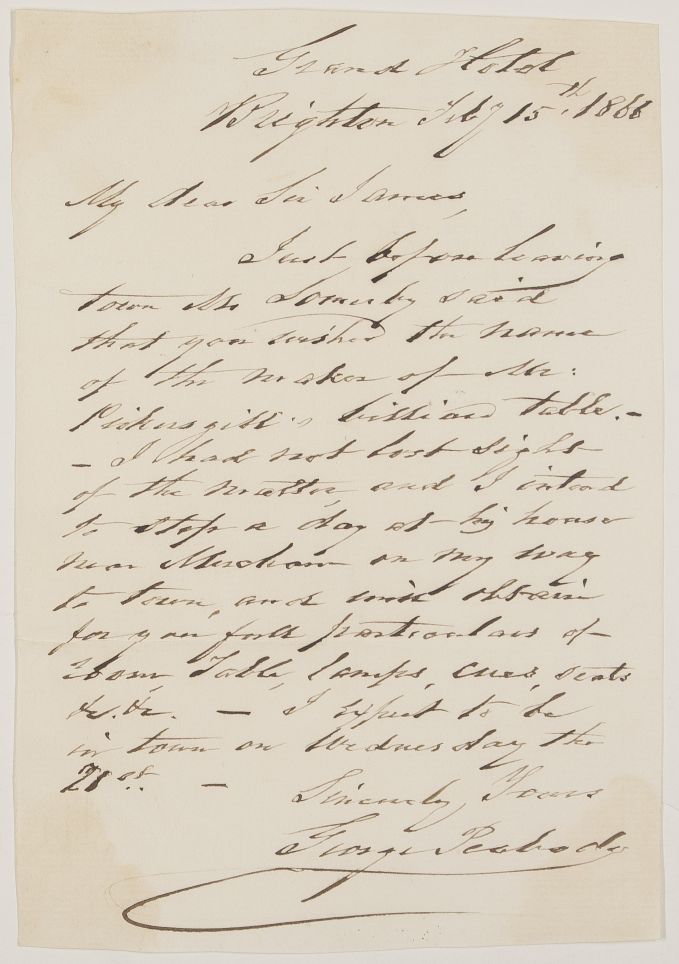 Grand Hotel
Brighton Feby 15th, 1866
My dear Sir James,
Just before leaving
town Mr Somerby said
that you wished the name
of the maker of Mr:
Pickersgill's billiard table. -
- I had not lost sight
of the matter, and I intend
to stop a day at his house
near Mersham on my way
to town, and will obtain
for you full particulars of
room, Table, lamps, cues, seats
&c. &c. - I expect to be
in town on Wednesday the
21st. -
Sincerely Yours
George Peabody